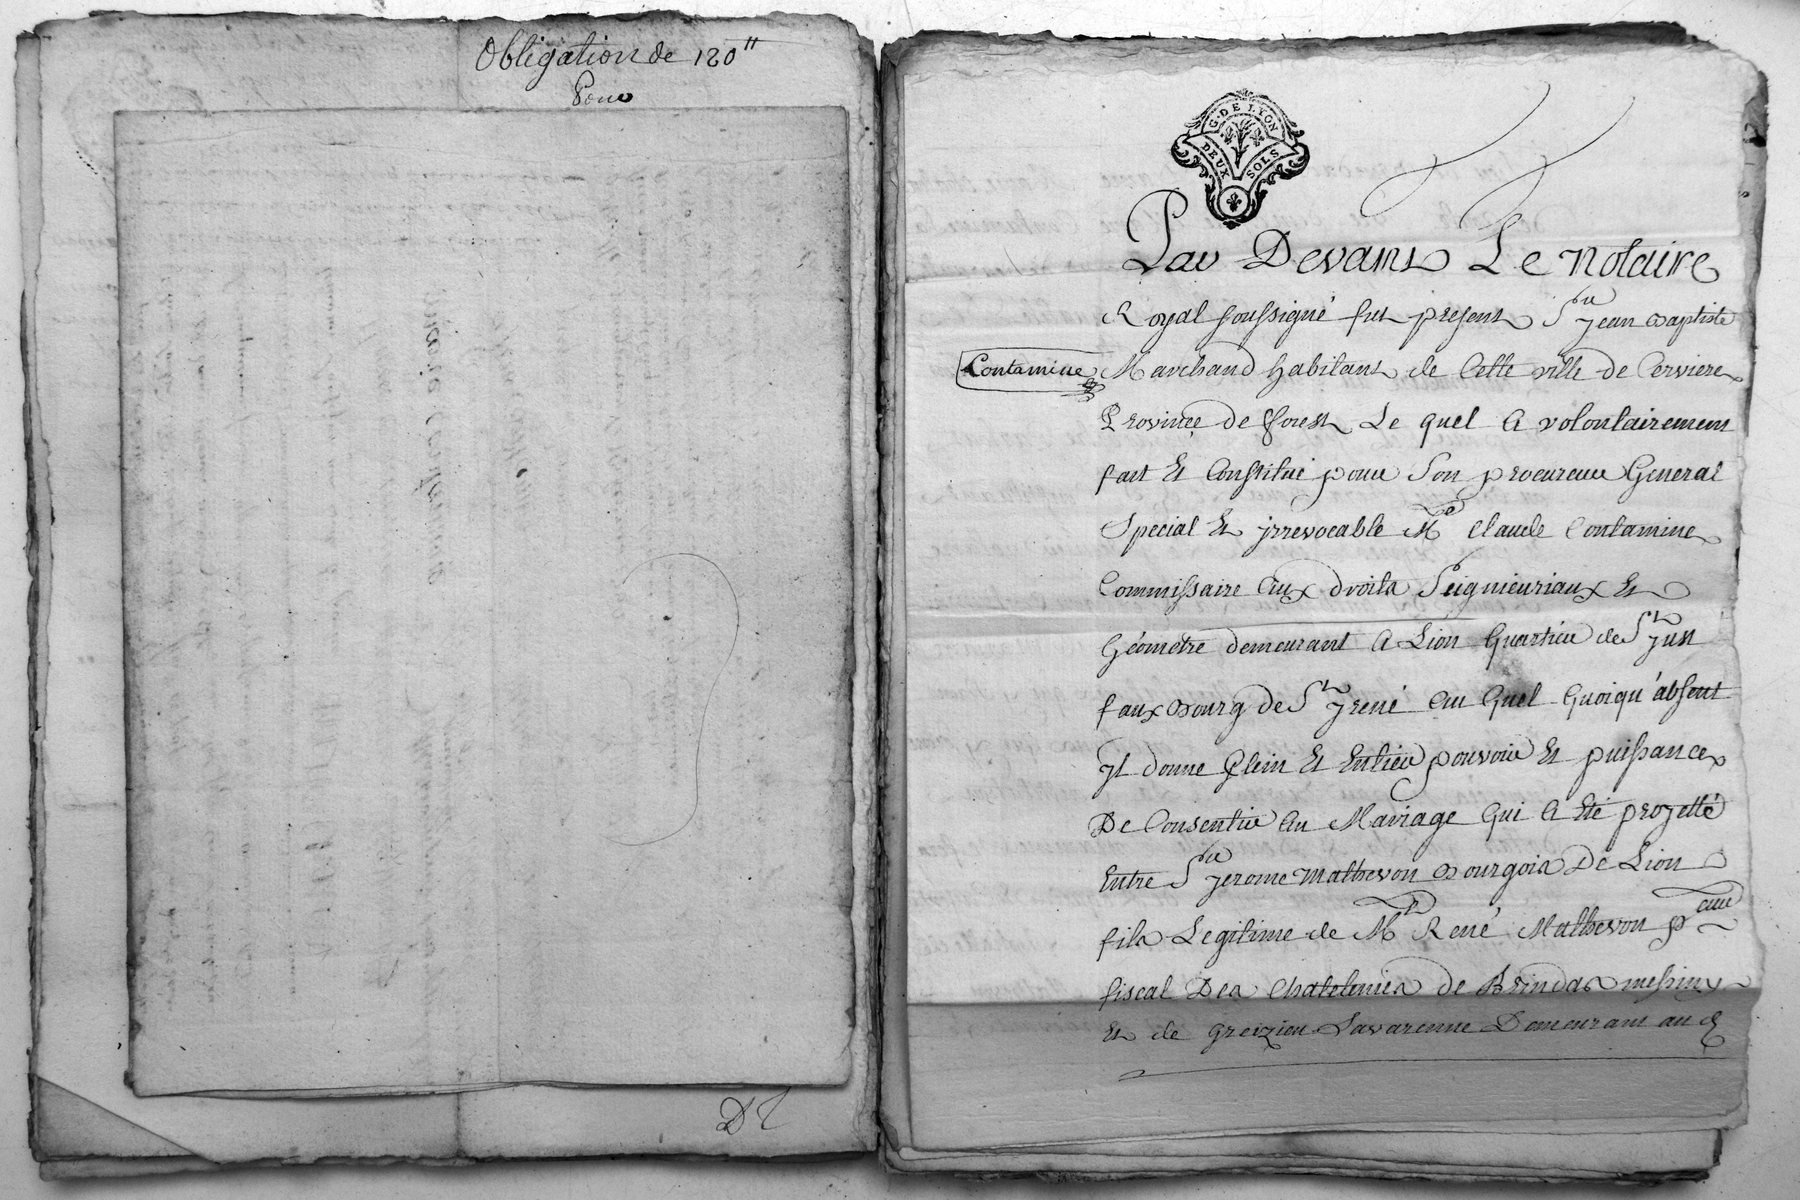 Obligation de 120ᵗᵗ
Pour
D
G. DE LYON
DEUX SOLS
Par Devant Le Notaire
Royal soussigné fut présent Sʳ jean Baptiste
Contamine Marchand habitant de Cette ville de Cerviere
Province de forest Le quel a volontairement
fait et Constitué pour Son procureur General
Special et irrevocable Mᵉ Claude Contamine
Commissaire aux droits Seigneuriaux et
Géometre demeurant a Lion quartier de Sᵗ just
faux bourg de Sᵗ jrené au quel quoiqu'absent
jl donne plein et entier pouvoir et puissance
De Consentir au Mariage qui a été projetté
entre Sʳ jerome mathevon bourgois De Lion
fils Legitime de Mᵉ René Mathevon pᵉᵘʳ
fiscal Des Chatelenies de Brindas messimy
et de greizieu Lavarenne Demeurant au d